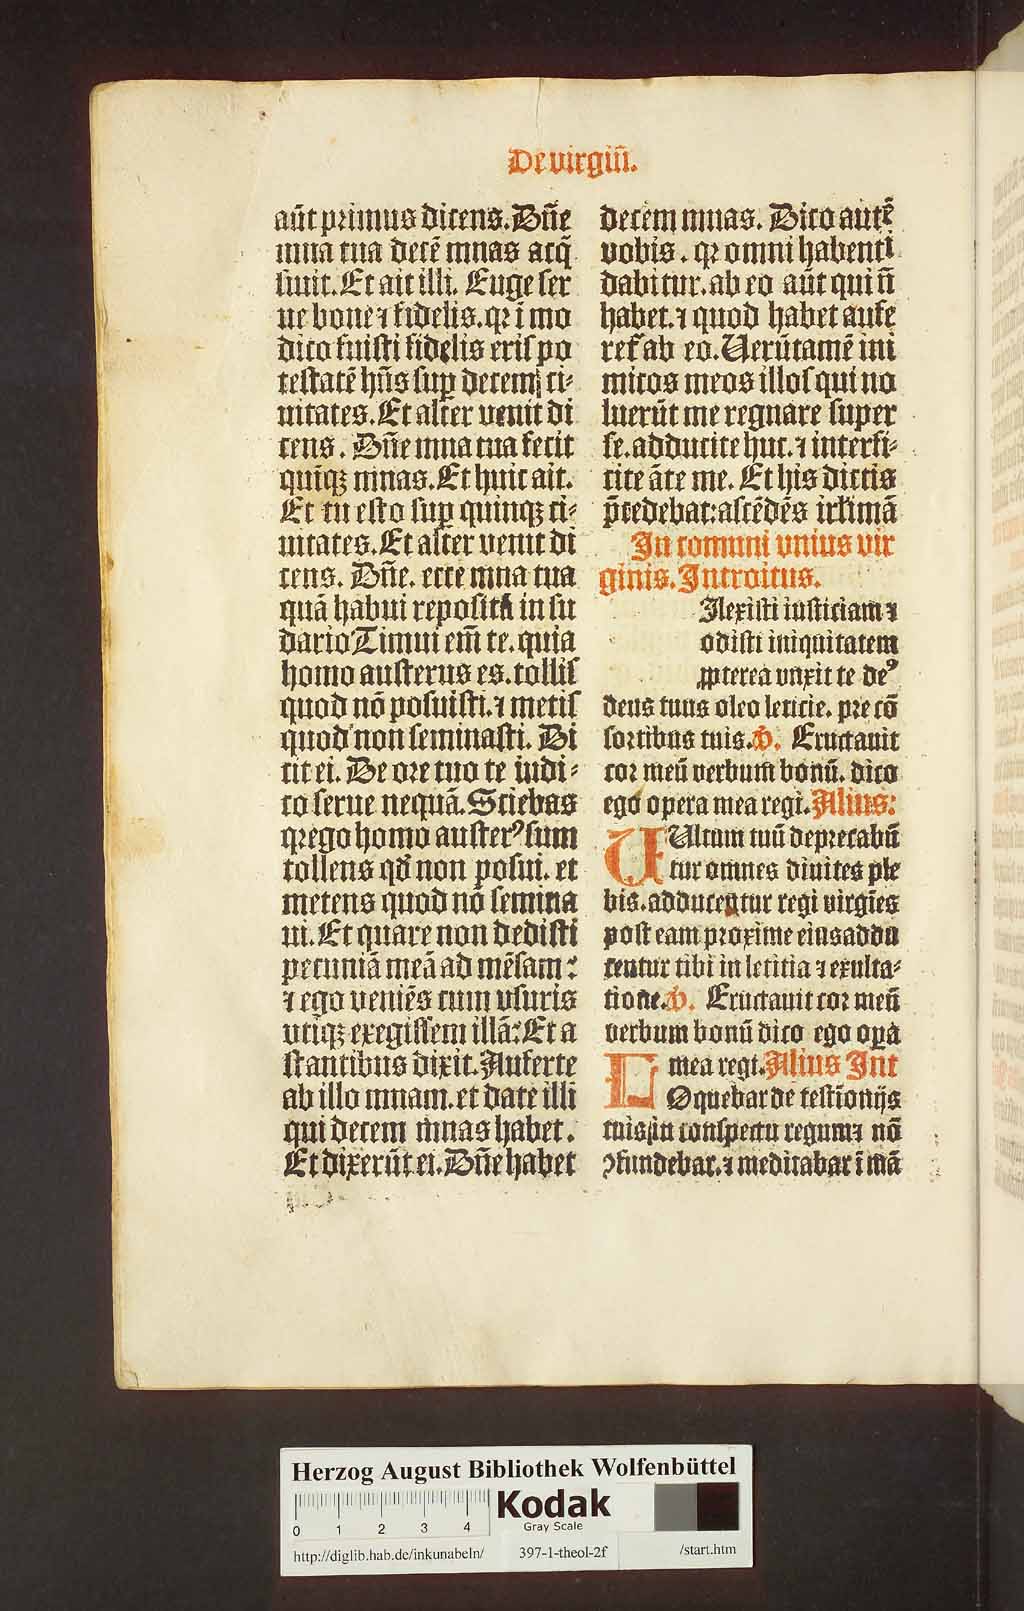 De virgiū.
aūt primus dicens. Dn̄e
mna tua decē mnas acq̄
siuit. Et ait illi. Euge ser
ue bone ⁊ fidelis. qꝛ ī mo
dico fuisti fidelis eris po
testatē hn̄s suꝑ decem ci⸗
uitates. Et alter venit di
cens. Dn̄e mna tua fecit
quinqꝫ mnas. Et huic ait.
Et tu esto suꝑ quinqꝫ ci⸗
uitates. Et alter venit di
cens. Dn̄e. ecce mna tua
quā habui reposita in su
dario Timui em̄ te. quia
homo austerus es. tollis
quod nō posuisti. ⁊ metis
quod non seminasti. Di
cit ei. De ore tuo te iudi⸗
co serue nequā. Sciebas
qꝛ ego homo austerꝰ sum
tollens qd̄ non posui. et
metens quod nō semina
ui. Et quare non dedisti
pecuniā meā ad mēsam:
⁊ ego veniēs cum vsuris
vtiqꝫ exegissem illā: Et a
stantibus dixit. Auferte
ab illo mnam. et date illi
qui decem mnas habet.
Et dixerūt ei. Dn̄e habet
decem mnas. Dico autē
vobis. qꝛ omni habenti
dabitur. ab eo aūt qui n̄
habet. ⁊ quod habet aufe
ret᷑ ab eo. Uerūtamē ini
micos meos illos qui no
luerūt me regnare super
se. adducite huc. ⁊ interfi⸗
cite āte me. Et his dictis
p̄cedebat: ascēdēs irl̄imā
In comuni vnius vir
ginis. Introitus.
Ilexisti iusticiam ⁊
odisti iniquitatem
ꝓpterea vnxit te deꝰ
deus tuus oleo leticie. pre cō
sortibus tuis. V̄. Eructauit
cor meū verbum bonū. dico
ego opera mea regi. Alius:
UUltum tuū deprecabū
tur omnes diuites ple
bis. adducentur regi virgīes
post eam proxime eius addu
centur tibi in leticia ⁊ exulta⸗
tione. V̄. Eructauit cor meū
verbum bonū dico ego oꝑa
mea regi. Alius Int
LOquebar de testīonijs
tuis in conspectu regum ⁊ nō
ꝯfundebar. ⁊ meditabar ī mā
Herzog August Bibliothek Wolfenbüttel
0 1 2 3 4
Kodak
Gray Scale
http://diglib.hab.de/inkunabeln/ 397-1-theol-2f /start.htm